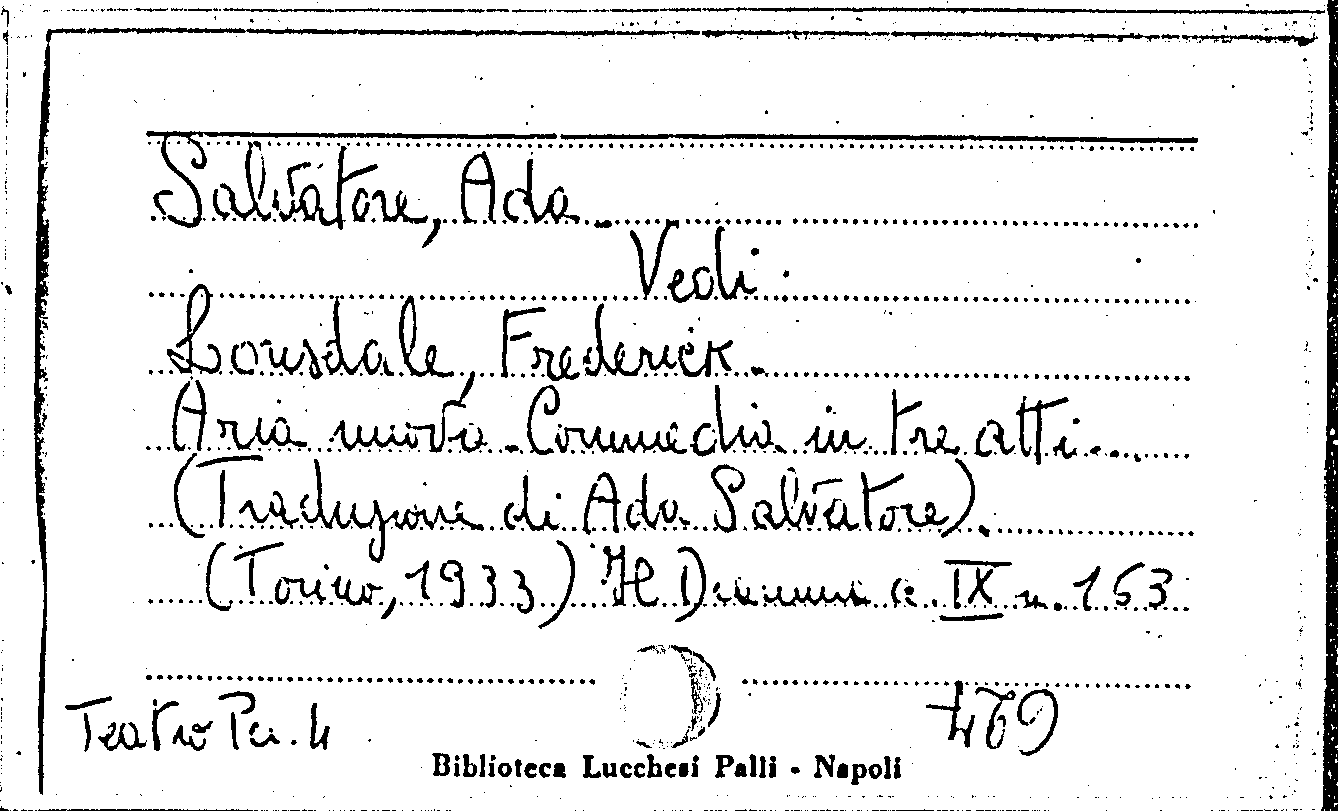 Salvatore, Ada.
Vedi:
Lonsdale, Frederick.
Aria nuova. Commedia in tre atti...
(Traduzione di Ada Salvatore).
(Torino, 1933) Il Dramma a. IX n. 163
Teatro Per. 4
469
Biblioteca Lucchesi Palli - Napoli